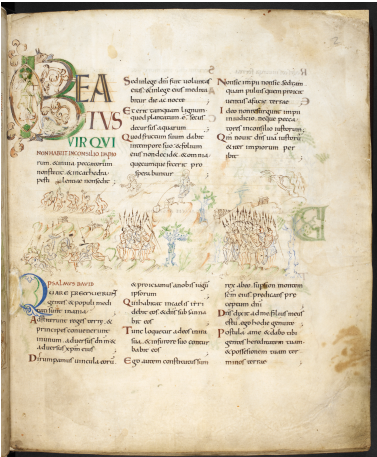 BEA
TUS
VIR QVI
NON HABIIT IN CONSILIO IMPIO
rum. & in uia peccatorum
non stetit. & in cathedra
pestilentiae non sedit
Sed in lege dni fuit uoluntas
eius. & in lege eius medita
bitur die ac nocte
Et erit tanquam lignum
quod plantatum e secus
decursus aquarum
Quod fructum suum dabit
in tempore suo. & folium
eius non decidet. & omnia
quaecumque fecerit pro
sperabuntur
Non sic impii non sic. sed tam
quam puluis quem proicit
uentus a facie terrae
Ideo non resurgunt impii
in iudicio. neque pecca
tores in consilio iustorum
Qm nouit dns uia iustoru
& iter impiorum per
ibit
PSALMVS DAVID
QUARE FREMUERUNT
gentes. & populi medi
tati sunt inania
Adstiterunt reges terrę. &
principes conuenerunt
in unum. aduersus dnm &
aduersus xpm eius
Dirumpamus uincula eorū.
& proiciamus a nobis iugū
ipsorum
Qui habitat in caelis irri
debit eos. & dns subsanna
bit eos
Tunc loquetur ad eos in ira
sua. & in furore suo contur
babit eos
Ego autem constitutus sum
rex ab eo. super sion montem
scm eius. praedicans prę
ceptum dni
Dns dixit ad me filius meus
es tu. ego hodie genui te
Postula a me & dabo tibi
gentes hereditatem tuam.
& possessionem tuam ter
minos terrae